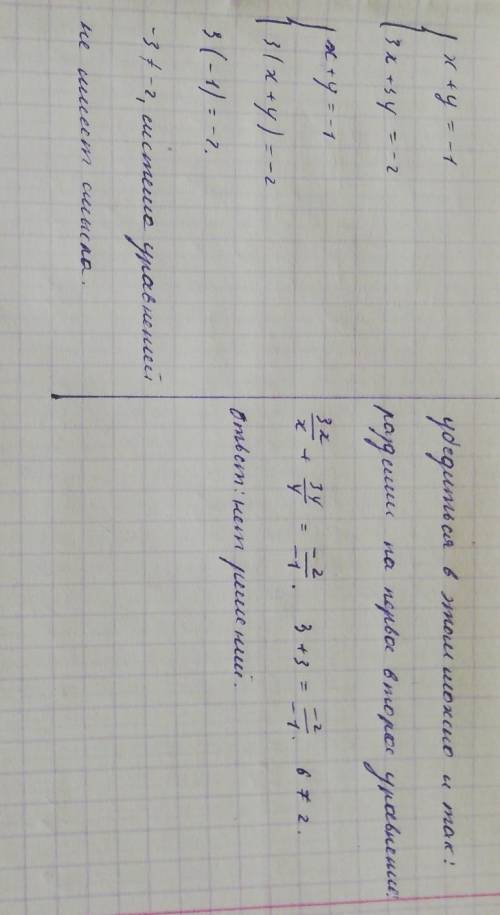 { x + y = -1
{ 3x + 3y = -2
{ x + y = -1
{ 3(x + y) = -2
3(-1) = -2.
-3 ≠ -2, система уравнений
не имеет смысла.
убедиться в этом можно и так:
разделим на первое второе уравнение:
3x/x + 3y/y = -2/-1. 3 + 3 = -2/-1. 6 ≠ 2.
Ответ: нет решений.